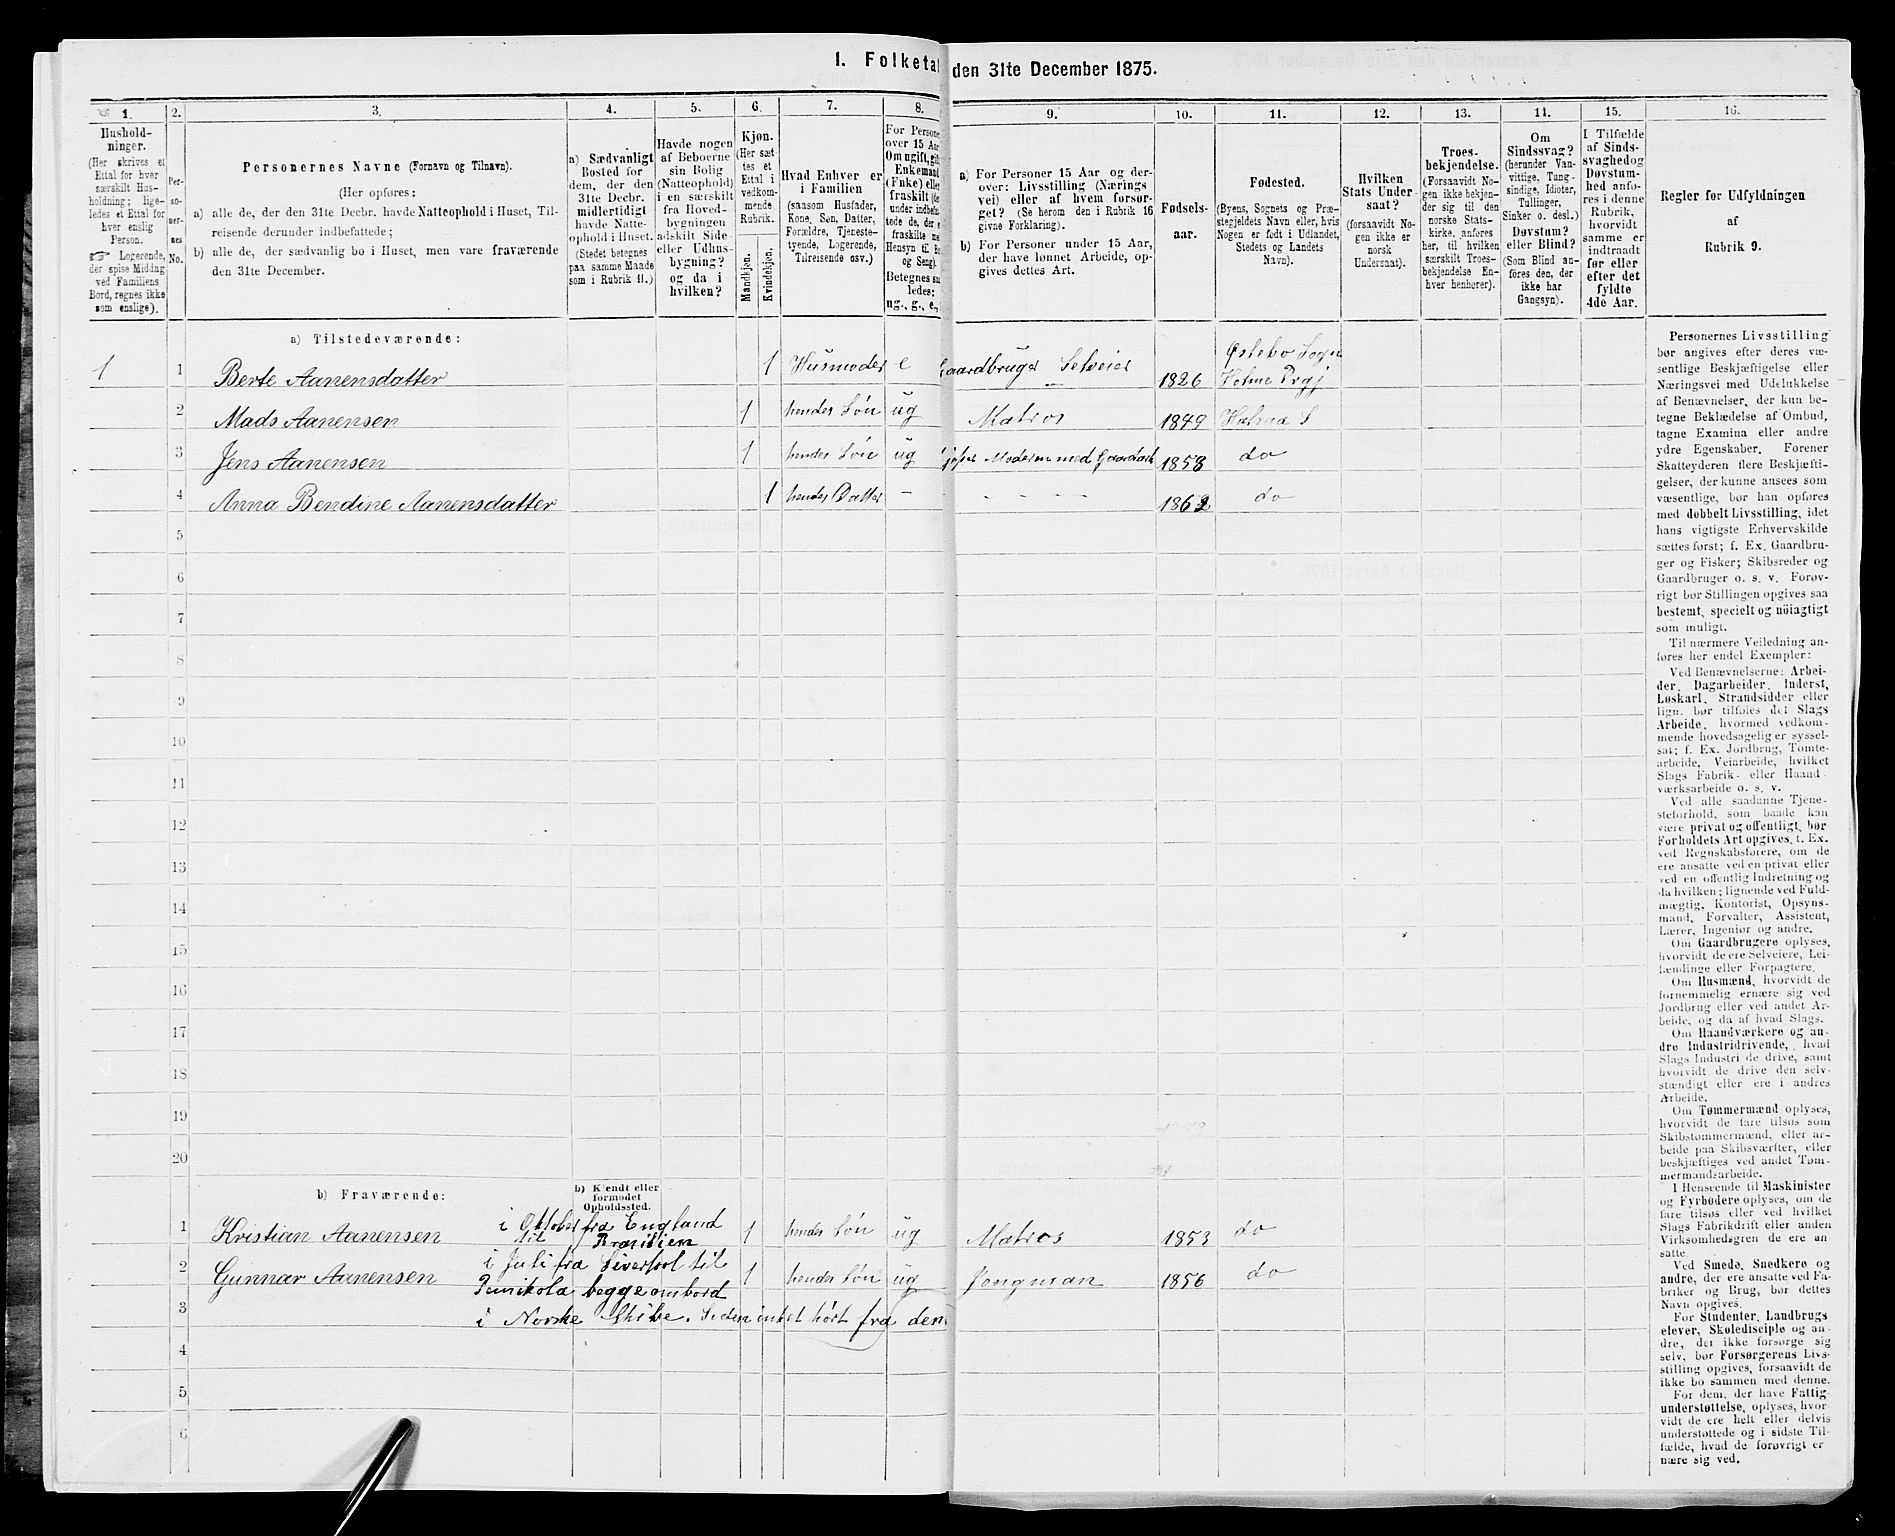 1. Folketal den 31te December 1875.
1. 2. 3. 4. 5. 6. 7. 8. 9. 10. 11. 12. 13. 14. 15. 16.
Hushold-
ninger.
(Her skrives et
Ettal for hver
særskilt Hus-
holdning; lige-
ledes et Ettal for
hver enslig
Person.
☞ Logerende,
der spise Middag
ved Familiens
Bord, regnes ikke
som enslige).
Per-
so-
ner-
nes
No.
Personernes Navne (Fornavn og Tilnavn).
(Her opføres:
a) alle de, der den 31te Decbr. havde Natteophold i Huset, Til-
reisende derunder indbefattede;
b) alle de, der sædvanlig bo i Huset, men vare fraværende
den 31te December.
a) Sædvanligt
Bosted for
dem, der den
31te Decbr.
midlertidigt
havde Natte-
ophold i Huset.
(Stedet betegnes
paa samme Maade
som i Rubrik 11.)
Havde nogen
af Beboerne
sin Bolig
(Natteophold)
i en særskilt
fra Hoved-
bygningen
adskilt Side-
eller Udhus-
bygning?
og da i
hvilken?
Kjøn.
(Her sæt-
tes et
Ettal i
vedkom-
mende
Rubrik.
Mandkjøn.
Kvindekjøn.
Hvad Enhver er
i Familien
(saasom Husfader,
Kone, Søn, Datter,
Forældre, Tjeneste-
tyende, Logerende,
Tilreisende osv.)
For Persone
over 15 Aar
Om ugift, gift
Enkemand
(Enke) eller
fraskilt (der
under indbefat
tede de, der e
fraskilte me
Hensyn til B
og Seng).
Betegnes saa
ledes:
ug., g., e.,
a) For Personer 15 Aar og der-
over: Livsstilling (Nærings
vei) eller af hvem forsør-
get? (Se herom den i Rubrik 16
givne Forklaring).
b) For Personer under 15 Aar,
der have lønnet Arbeide, op-
gives dettes Art.
Fødsels-
aar.
Fødested.
(Byens, Sognets og Præ-
stegjeldets Navn eller, hvis
Nogen er født i Udlandet,
Stedets og Landets
Navn).
Hvilken
Stats Under-
saat?
(forsaavidt No-
gen ikke er
norsk
Undersaat).
Troes-
bekjendelse.
(Forsaavidt No-
gen ikke bekjen-
der sig til den
norske Stats-
kirke, anføres
her, til hvilken
særskilt Troes-
bekjendelse En-
hver henhører).
Om
Sindssvag?
(herunder Van-
vittige, Tung-
sindige, Idioter,
Tullinger,
Sinker o. desl.)
Døvstum?
eller Blind?
(Som Blind an-
føres den, der
ikke har
Gangsyn).
I Tilfælde
af Sinds-
svaghed og
Døvstum-
hed anfø-
res i denne
Rubrik,
hvorvidt
samme er
indtraadt
før eller
efter det
fyldte
4de Aar.
Regler for Udfyldningen
af
Rubrik 9.
a) Tilstedeværende:
1 1 Berte Aanensdatter 1 Husmoder e Gaardbruger Selveier 1826 Østebo Sogn
Holme Prgj
2 Mads Aanensen 1 hendes Søn ug Matros 1849 S
3 Jens Aanensen 1 hendes Søn ug Moderen med 1858 do
4 Anna Bendine Aanensdatter 1 hendes Datter - - - - - 1862 do
5
6
7
8
9
10
11
12
13
14
15
16
17
18
19
20
b) Fraværende:
b) Kjendt eller
formodet
Opholdssted.
1 Kristian Aanensen i Oktober fra England
til Brasilien 1 hendes Søn ug Matros 1853 do
2 Gunnar Aanensen i Juli fra Liverpol til
begge ombord 1 hendes Søn ug Jongman 1856 do
3 i Norske Skibe. Siden inket hørt fra dem
4
5
6
Personernes Livsstilling
bør angives efter deres væ-
sentlige Beskjæftigelse eller
Næringsvei med Udelukkelse
af Benævnelser, der kun be-
tegne Beklædelse af Ombud,
tagne Examina eller andre
ydre Egenskaber. Forener
Skatteyderen flere Beskjæfti-
gelser, der kunne ansees som
væsentlige, bør han opføres
med dobbelt Livsstilling, idet
hans vigtigste Erhvervskilde
sættes først; f. Ex. Gaardbru-
ger og Fisker; Skibsreder og
Gaardbruger o. s. v. Forøv-
rigt bør Stillingen opgives saa
bestemt, specielt og nöiagtigt
som muligt.
Til nærmere Veiledning an-
føres her endel Exempler:
Ved Benævnelserne: Arbei-
der, Dagarbeider, Inderst,
Løskarl, Strandsidder eller
lign. bør tilføies det Slags
Arbeide, hvormed vedkom-
mende hovedsagelig er syssel-
sat; f. Ex. Jordbrug, Tomte-
arbeide, Veiarbeide, hvilket
Slags Fabrik- eller Haand-
værksarbeide o. s. v.
Ved alle saadanne Tjene-
steforhold, som baade kan
være privat og offentligt, bør
Forholdets Art opgives, t. Ex.
ved Regnskabsførere, om de
ere ansatte ved en privat eller
ved en offentlig Indretning og
da hvilken; lignende ved Fuld-
mægtig, Kontorist, Opsyns-
mand, Forvalter, Assistent,
Lærer, Ingeniør og andre.
Om Gaardbrugere oplyses,
hvorvidt de ere Selveiere, Lei-
lændinge eller Forpagtere.
Om Husmænd, hvorvidt de
fornemmelig ernære sig ved
Jordbrug eller ved andet Ar-
beide, og da af hvad Slags.
Om Haandværkere og an-
dre Industridrivende, hvad
Slags Industri de drive, samt
hvorvidt de drive den selv-
stændigt eller ere i andres
Arbeide.
Om Tømmermænd oplyses,
hvorvidt de fare tilsøs som
Skibstømmermænd, eller ar-
beide paa Skibsværfter, eller
beskjæftiges ved andet Tøm-
mermandsarbeide.
I Henseende til Maskinister
og Fyrbødere oplyses, om de
fare tilsøs eller ved hvilket
Slags Fabrikdrift eller anden
Virksomhedsgren de ere an-
satte.
Ved Smede, Snedkere og
andre, der ere ansatte ved Fa-
briker og Brug, bør dettes
Navn opgives.
For Studenter, Landbrugs-
elever, Skoledisciple og an-
dre, der ikke forsørge sig
selv, bør Forsørgerens Livs-
stilling opgives, forsaavidt de
ikke bo sammen med denne.
For dem, der have Fattig-
understøttelse, oplyses, hvor-
vidt de ere helt eller delvis
understøttede og i sidste Til-
fælde, hvad de forøvrigt er-
nære sig ved.